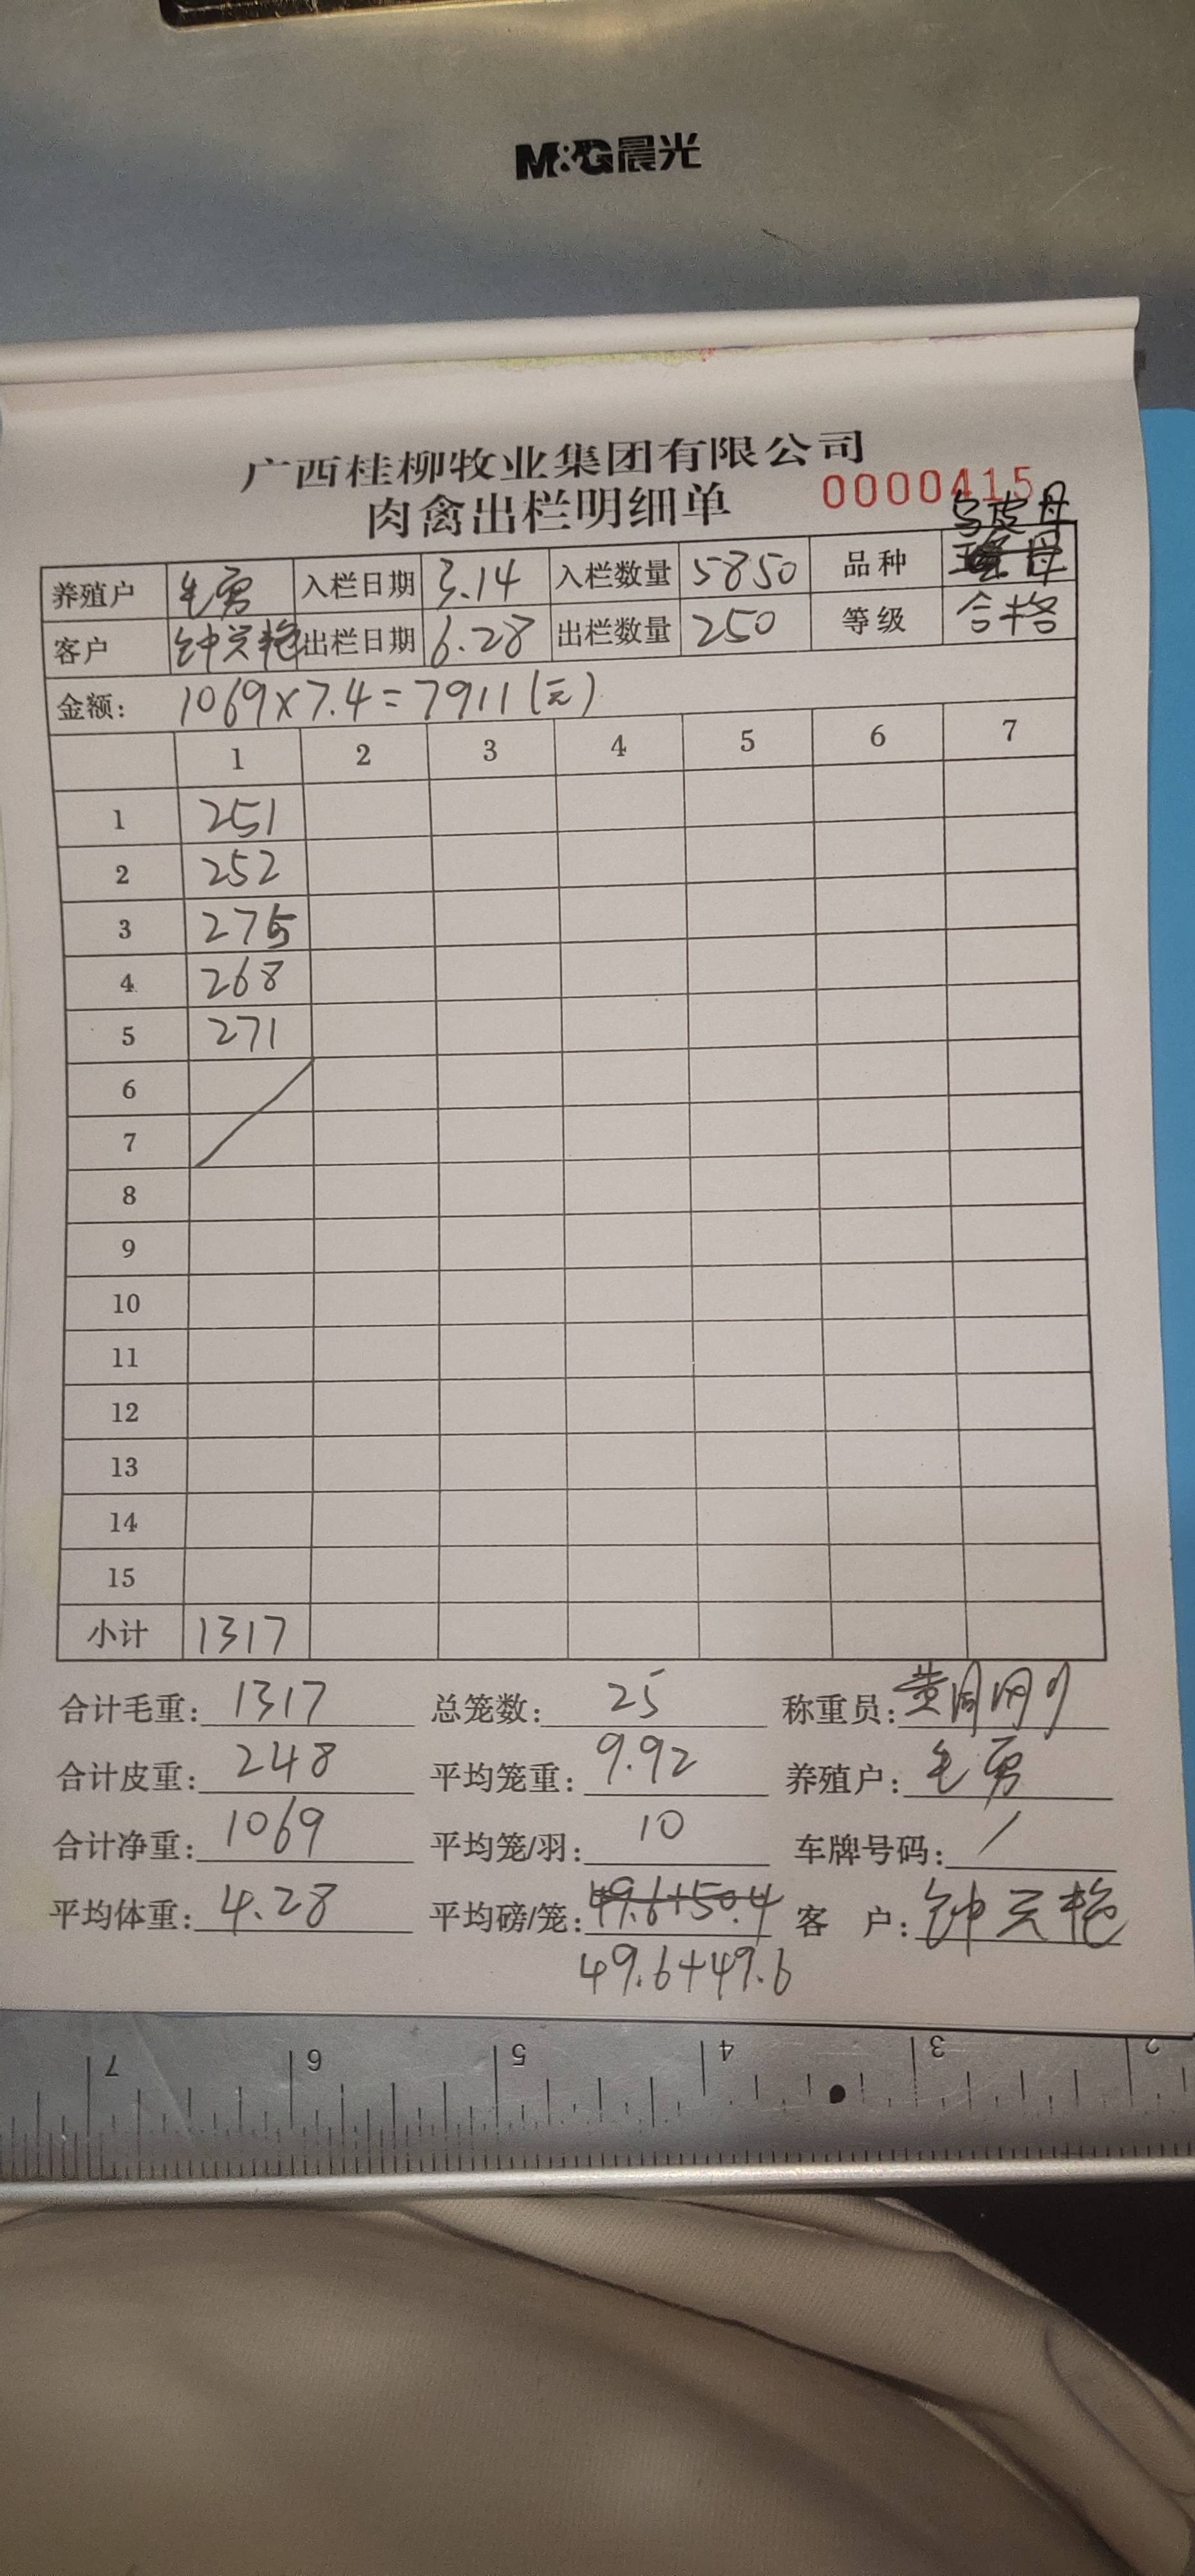 M&G晨光
广西桂柳牧业集团有限公司
肉禽出栏明细单 0000415
乌皮母
养殖户 毛勇 入栏日期 3.14 入栏数量 5850 品种
客户 钟兴艳 出栏日期 6.28 出栏数量 250 等级 合格
金额: 1069×7.4=7911(元)
1 2 3 4 5 6 7
1 251
2 252
3 275
4 268
5 271
6
7
8
9
10
11
12
13
14
15
小计 1317
合计毛重: 1317 总笼数: 25 称重员: 黄
合计皮重: 248 平均笼重: 9.92 养殖户: 毛勇
合计净重: 1069 平均笼/羽: 10 车牌号码: /
平均体重: 4.28 平均磅/笼: 49.6+50.4 客 户: 钟兴艳
49.6+49.6
7 6 5 4 3 2